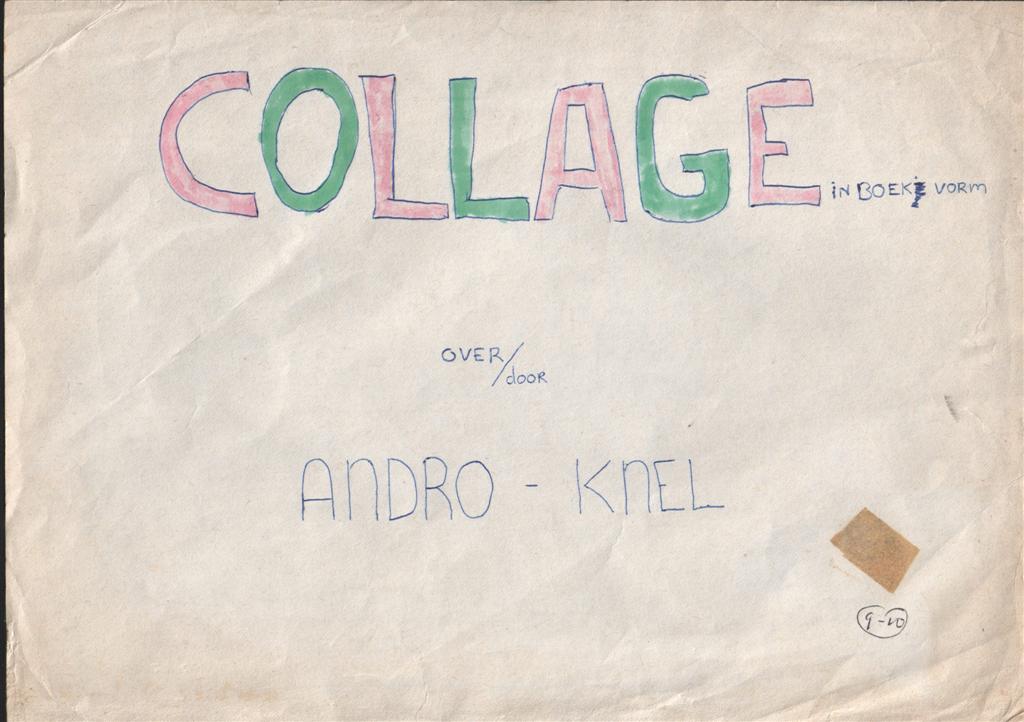 COLLAGE IN BOEK VORM
OVER/
door
ANDRO - KNEL
9-10